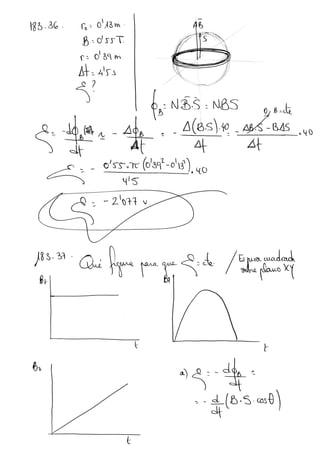 183.36. r₀ = 0'13m.
B = 0'55T.
r = 0'39m
Δt = 4'5s
ε?
B S
ϕ_B = N B⃗·S⃗ = NBS
ε = -dϕ_B/dt ≈ -Δϕ_B/Δt = -Δ(B·S)·40/Δt = -ΔB·S - BΔS/Δt · 40
0, B=cte
ε = - 0'55·π(0'39²-0'13²)/4'5 · 40
ε = -2'077 v
183.37. Qué figura para que ε = cte. / Espira cuadrada
sobre plano XY
B₂
t
B₂
t
B₂
t
a) ε = -dϕ_B/dt =
= -d/dt (B·S·cosθ)